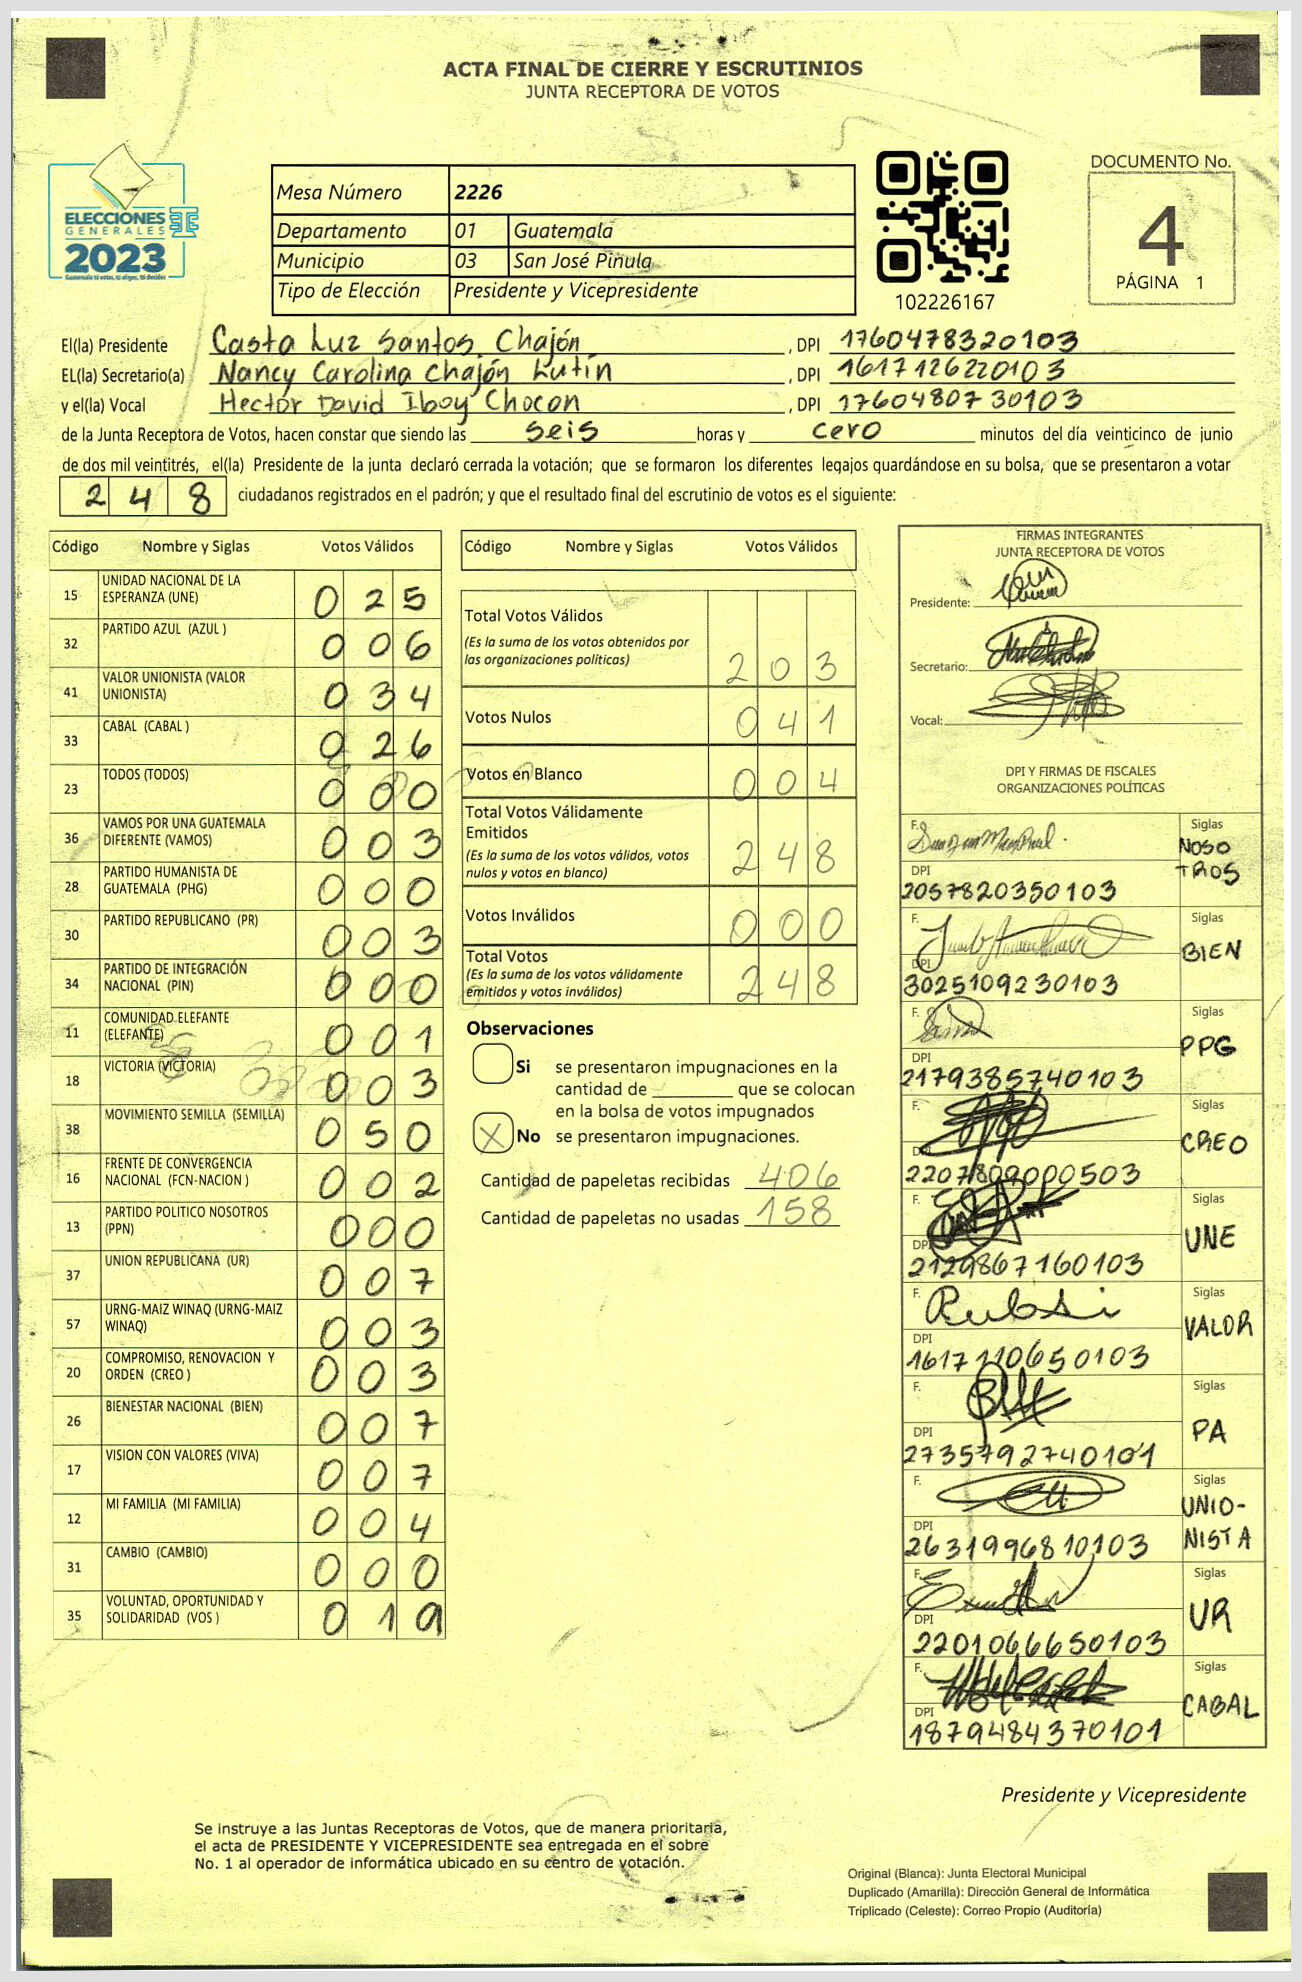 ACTA FINAL DE CIERRE Y ESCRUTINIOS
JUNTA RECEPTORA DE VOTOS
ELECCIONES
GENERALES
2023
Mesa Número 2226
Departamento 01 Guatemala
Municipio 03 San José Pinula
Tipo de Elección Presidente y Vicepresidente
102226167
DOCUMENTO No.
4
PÁGINA 1
El(la) Presidente Casta Luz Santos Chajón, DPI 1760478320103
EL(la) Secretario(a) Nancy Carolina Chajón Lutín, DPI 1617126220103
y el(la) Vocal Hector David Iboy Chocon, DPI 1760480730103
de la Junta Receptora de Votos, hacen constar que siendo las seis horas y cero minutos del día veinticinco de junio
de dos mil veintitrés, el(la) Presidente de la junta declaró cerrada la votación; que se formaron los diferentes legajos guardándose en su bolsa, que se presentaron a votar
248 ciudadanos registrados en el padrón; y que el resultado final del escrutinio de votos es el siguiente:
Código Nombre y Siglas Votos Válidos
15 UNIDAD NACIONAL DE LA ESPERANZA (UNE) 025
32 PARTIDO AZUL (AZUL ) 006
41 VALOR UNIONISTA (VALOR UNIONISTA) 034
33 CABAL (CABAL ) 026
23 TODOS (TODOS) 000
36 VAMOS POR UNA GUATEMALA DIFERENTE (VAMOS) 003
28 PARTIDO HUMANISTA DE GUATEMALA (PHG) 000
30 PARTIDO REPUBLICANO (PR) 003
34 PARTIDO DE INTEGRACIÓN NACIONAL (PIN) 000
11 COMUNIDAD ELEFANTE (ELEFANTE) 001
18 VICTORIA (VICTORIA) 003
38 MOVIMIENTO SEMILLA (SEMILLA) 050
16 FRENTE DE CONVERGENCIA NACIONAL (FCN-NACION ) 002
13 PARTIDO POLITICO NOSOTROS (PPN) 000
37 UNION REPUBLICANA (UR) 007
57 URNG-MAIZ WINAQ (URNG-MAIZ WINAQ) 003
20 COMPROMISO, RENOVACION Y ORDEN (CREO ) 003
26 BIENESTAR NACIONAL (BIEN) 007
17 VISION CON VALORES (VIVA) 007
12 MI FAMILIA (MI FAMILIA) 004
31 CAMBIO (CAMBIO) 000
35 VOLUNTAD, OPORTUNIDAD Y SOLIDARIDAD (VOS ) 019
Código Nombre y Siglas Votos Válidos
Total Votos Válidos
(Es la suma de los votos obtenidos por
las organizaciones políticas) 203
Votos Nulos 041
Votos en Blanco 004
Total Votos Válidamente
Emitidos
(Es la suma de los votos válidos, votos
nulos y votos en blanco) 248
Votos Inválidos 000
Total Votos
(Es la suma de los votos válidamente
emitidos y votos inválidos) 248
Observaciones
Si se presentaron impugnaciones en la
cantidad de ________ que se colocan
en la bolsa de votos impugnados
X No se presentaron impugnaciones.
Cantidad de papeletas recibidas 406
Cantidad de papeletas no usadas 158
FIRMAS INTEGRANTES
JUNTA RECEPTORA DE VOTOS
Presidente:
Secretario:
Vocal:
DPI Y FIRMAS DE FISCALES
ORGANIZACIONES POLÍTICAS
F. Siglas NOSOTROS
DPI 2057820350103
F. Siglas BIEN
DPI 3025109230103
F. Siglas PPG
DPI 2179385740103
F. Siglas CREO
DPI 2207809000503
F. Siglas UNE
DPI 2129867160103
F. Siglas VALOR
DPI 1617110650103
F. Siglas PA
DPI 2735792740101
F. Siglas UNIO-
NISTA
DPI 2631996810103
F. Siglas UR
DPI 2201066650103
F. Siglas CABAL
DPI 1879484370101
Presidente y Vicepresidente
Se instruye a las Juntas Receptoras de Votos, que de manera prioritaria,
el acta de PRESIDENTE Y VICEPRESIDENTE sea entregada en el sobre
No. 1 al operador de informática ubicado en su centro de votación.
Original (Blanca): Junta Electoral Municipal
Duplicado (Amarilla): Dirección General de Informática
Triplicado (Celeste): Correo Propio (Auditoría)